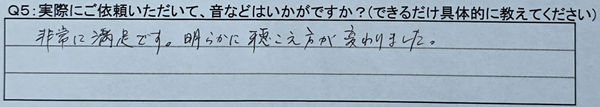 Q5:実際にご依頼いただいて、音などはいかがですか?(できるだけ具体的に教えてください)
非常に満足です。明らかに聴こえ方が変わりました。